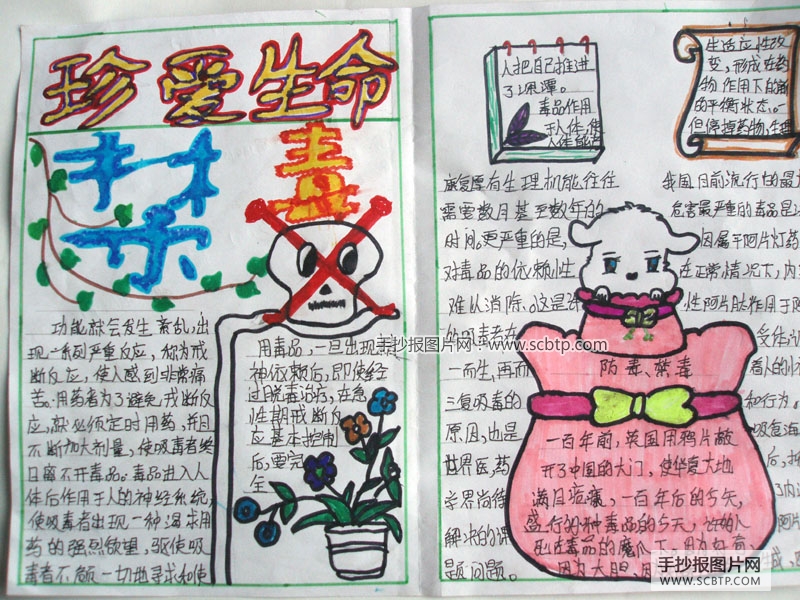 珍爱生命
禁毒
功能就会发生紊乱,出
现一系列严重反应,称为戒
断反应,使人感到非常痛
苦。用药者为了避免戒断反
应,就必须定时用药,并且
不断加大剂量,使吸毒者终
日离不开毒品。毒品进入人
体后作用于人的神经系统
使吸毒者出现一种渴求用
药的强烈欲望,驱使吸
毒者不顾一切地寻求和使
用毒品,一旦出现
神依赖后,即使经
过脱毒治疗,在急
性期戒断反
应基本控制
后,要完
全
人把自己推进
了深潭。
毒品作用
于人体,使
人体能产
生活应性改
变,形成在药
物作用下的新
的平衡状态。
但停掉药物,生理
康复原有生理机能往往
需要数月甚至数年的
时间。更严重的是,
对毒品的依赖性
难从消除。这是许
吸毒者在
一而生,再而
三复吸毒的
原因,也是
世界医,药
学界尚待
解决的课
题问题。
我国目前流行的最
危害最严重的毒品是
因属于阿片灯药
在正常情况下,内
性阿片肽作用于阿
受体
着人的
和行为。
吸食海
后,
防毒、禁毒
一百年前,英国用鸦片敲
开了中国的大门,使华夏大地
满目疮痍,一百年后的今天,
盛行的种毒品的今天,
死在毒品的魔爪下,因为好奇
因为大胆,
手抄报图片网——www.scbtp.com
手抄报图片网
WWW.SCBTP.COM